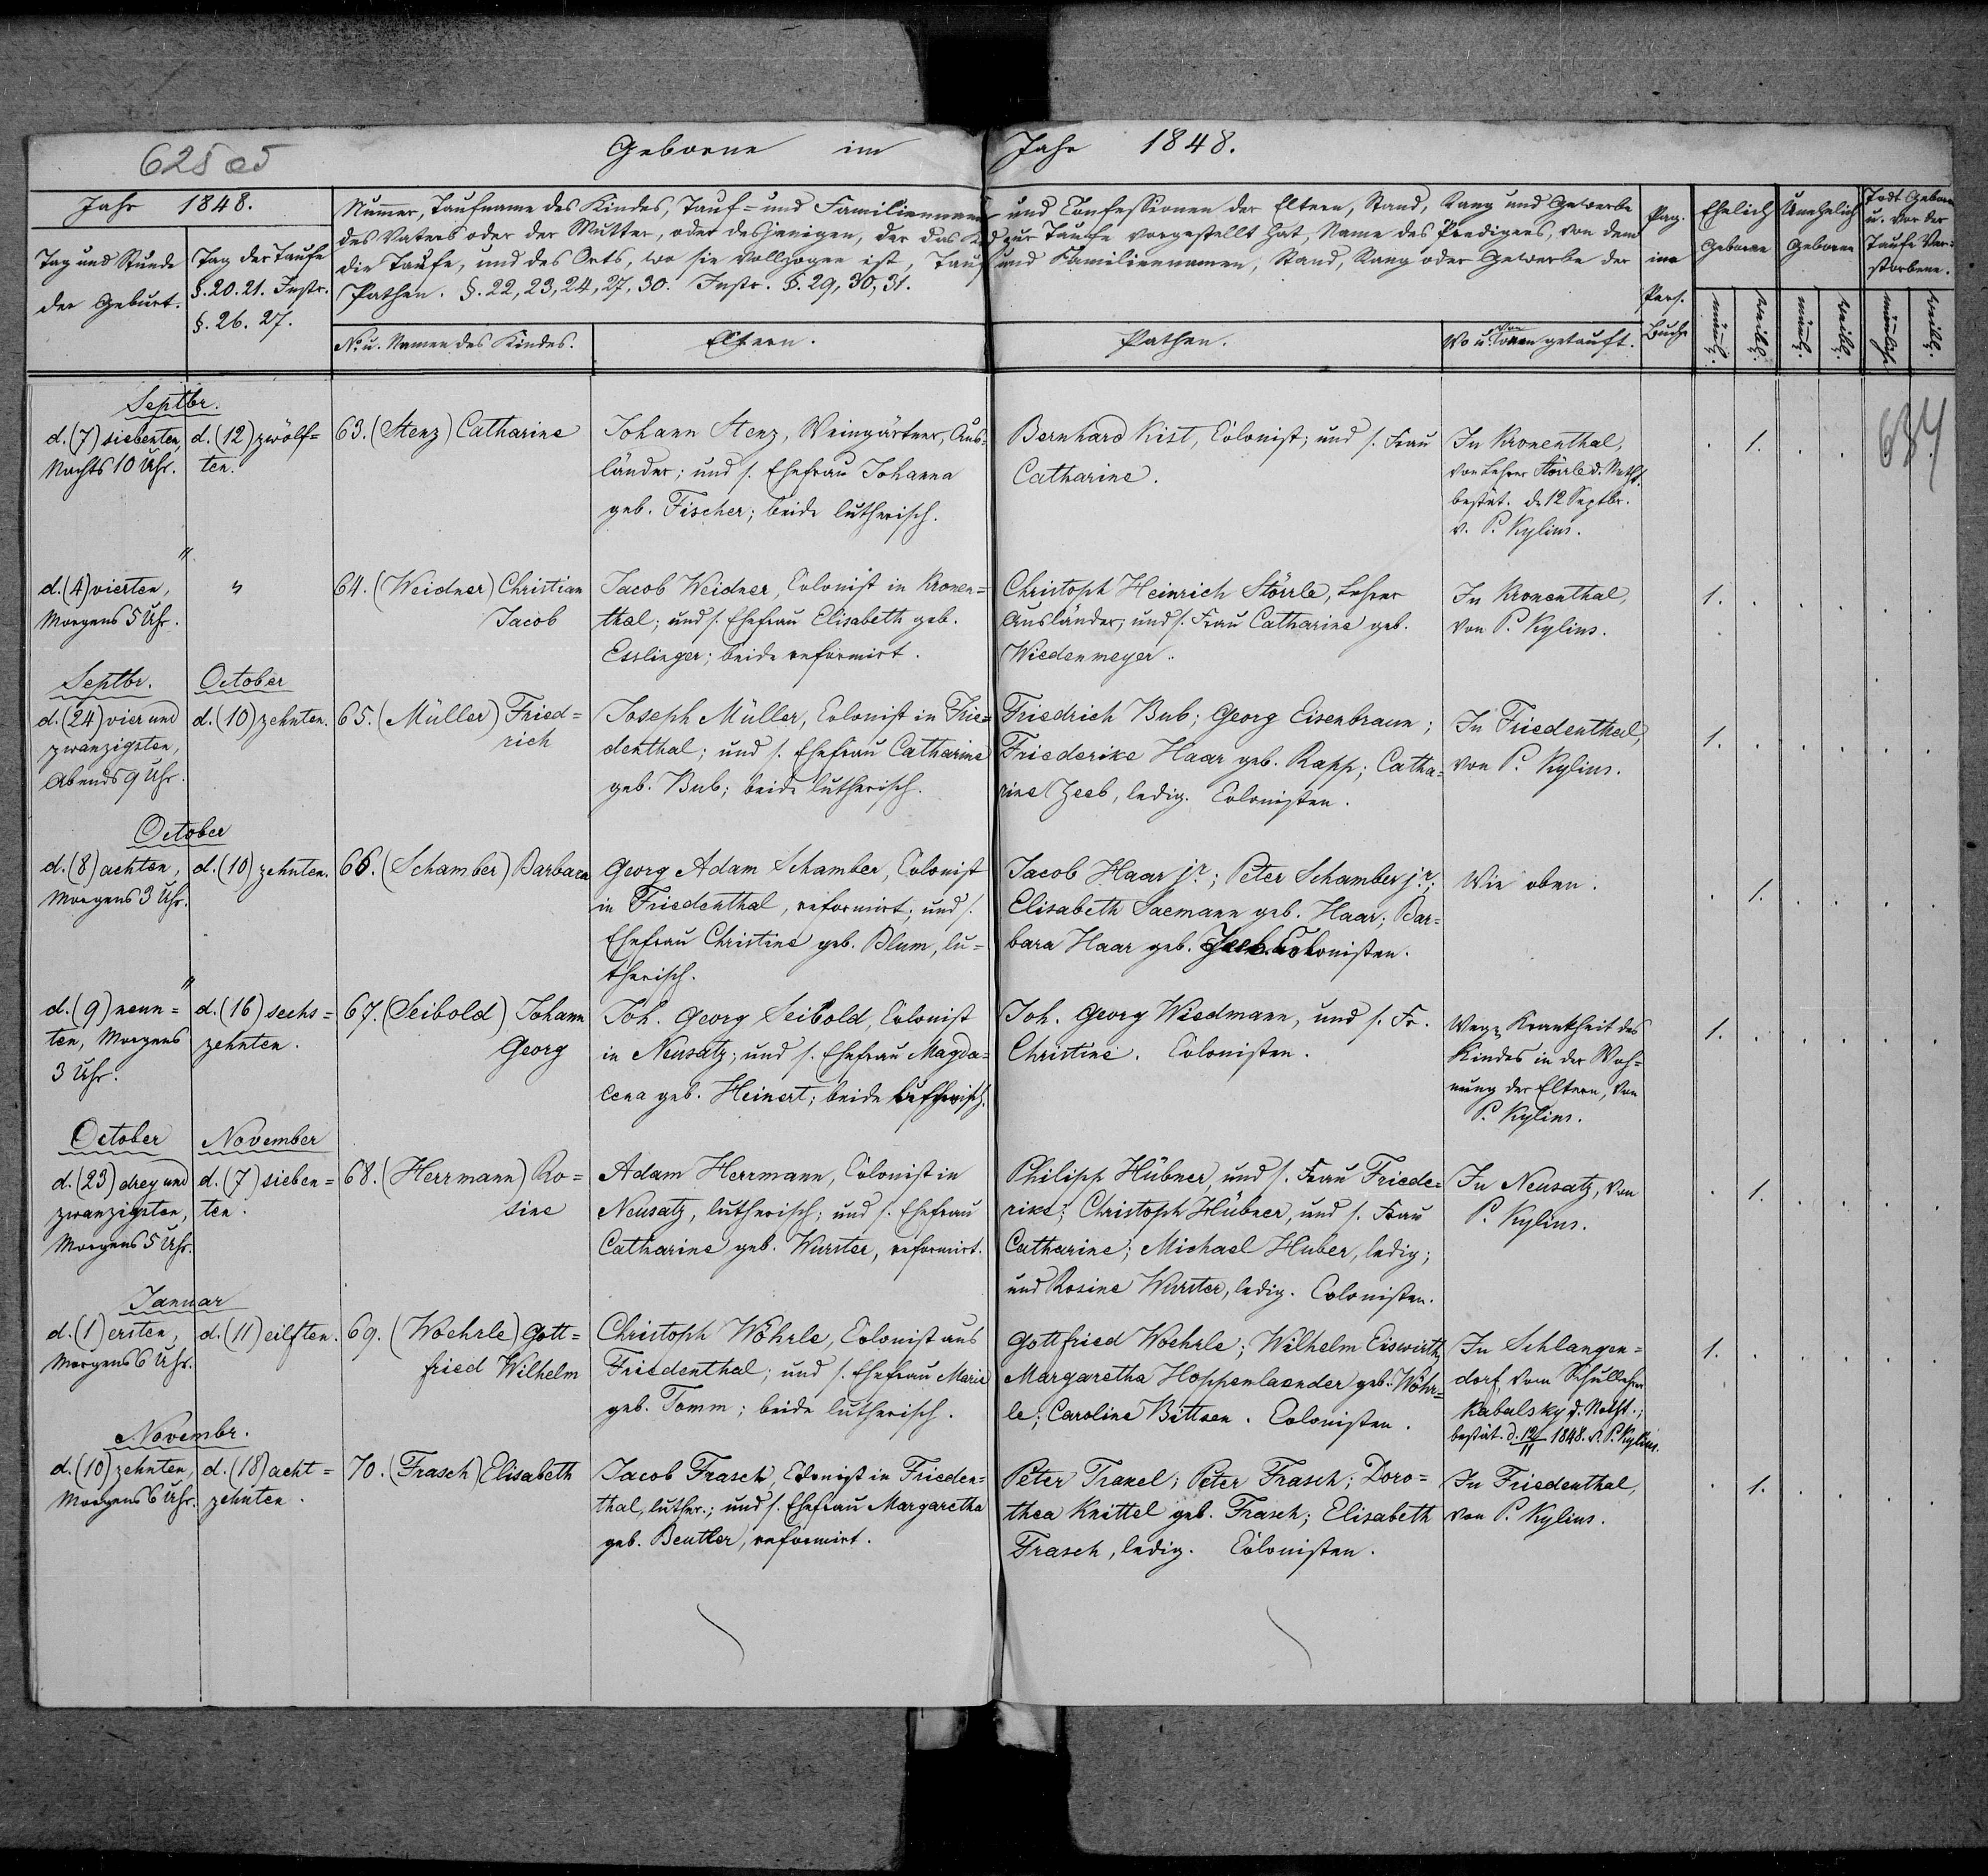 625 05
Geborne im Jahr 1848.
Jahr 1848.
Tag und Stunde
der Geburt.
Tag der Taufe
§. 20. 21. Instr.
§. 26. 27.
Numer, Taufname des Kindes, Tauf= und Familiennamen und Confessionen der Eltern, Stand, Rang und Gewerbe
des Vaters oder der Mutter, oder desjenigen, der das Kind zur Taufe vorgestellt hat, Name des Predigers, von dem
die Taufe, und des Orts, wo sie vollzogen ist, Tauf und Familiennamen, Stand, Rang oder Gewerbe der
Pathen. §. 22, 23, 24, 27, 30. Instr. §. 29, 30, 31.
N. u. Namen des Kindes.
Eltern.
Pathen.
Wo u. von wem getauft.
Pag.
ina
Pers.
Buchs
Ehelich
Geborne
Unehelich
Geborne
Todt Geborne
u. vor der
Taufe Ver=
storbene.
männl.
weibl.
männl.
weibl.
männlich
weibl.
634
Septbr.
d. (7) siebenten,
Nachts 10 Uhr.
d. (12) zwölf=
ten.
63. (Stenz) Catharine
Johann Stenz, Weingärtner, Aus=
länder; und s. Ehefrau Johanna
geb. Fischer; beide lutherisch.
Bernhard Kist, Colonist; und s. Frau
Catharine.
In Kronenthal,
von Lehrer Störrle d. Notht.
bestät. d. 12 Septbr.
v. P. Kylius.
. 1. . .
"
d. (4) vierten,
Morgens 5 Uhr.
"
64. (Weidner) Christian
Jacob
Jacob Weidner, Colonist in Kronen=
thal; und s. Ehefrau Elisabeth geb.
Esslinger; beide reformirt.
Christoph Heinrich Störrle, Lehrer
Ausländer; und s. Frau Catharine geb.
Wiedenmeyer.
In Kronenthal,
von P. Kylius.
1. . . . . .
Septbr.
October
d. (24) vier und
zwanzigsten,
Abends 9 Uhr.
d. (10) zehnten.
65. (Müller) Fried=
rich
Joseph Müller, Colonist in Frie=
denthal; und s. Ehefrau Catharine
geb. Bub; beide lutherisch.
Friedrich Bub; Georg Eisenbraun;
Friederike Haar geb. Rapp; Catha=
rine Zeeb, ledig. Colonisten.
In Friedenthal,
von P. Kylius.
1. . . . . .
October
d. (8) achten,
Morgens 3 Uhr.
d. (10) zehnten.
66. (Schamber) Barbara
Georg Adam Schamber, Colonist
in Friedenthal, reformirt; und s.
Ehefrau Christine geb. Blum, lu=
therisch.
Jacob Haar jr.; Peter Schamber jr.;
Elisabeth Saemann geb. Haar; Bar=
bara Haar geb. Zeeb. Colonisten.
Wie oben.
. 1. . . . .
"
d. (9) neun=
ten, Morgens
3 Uhr.
d. (16) sechs=
zehnten.
67. (Seibold) Johann
Georg
Joh. Georg Seibold, Colonist
in Neusatz; und s. Ehefrau Magda=
lena geb. Heinert; beide lutherisch.
Joh. Georg Wiedmann, und s. Fr.
Christine. Colonisten.
Wegen Krankheit des
Kindes in der Woh=
nung der Eltern, von
P. Kylius.
1. . . . . .
October
November
d. (23) drey und
zwanzigsten,
Morgens 5 Uhr.
d. (7) sieben=
ten.
68. (Herrmann) Ro=
sine
Adam Herrmann, Colonist in
Neusatz, lutherisch; und s. Ehefrau
Catharine geb. Wurster, reformirt.
Philipp Hübner, und s. Frau Friede=
rike; Christoph Hübner, und s. Frau
Catharine; Michael Huber, ledig;
und Rosine Wurster, ledig. Colonisten.
In Neusatz, von
P. Kylius.
. 1. . . . .
Januar
d. (1) ersten,
Morgens 6 Uhr.
d. (11) eilften.
69. (Woehrle) Gott=
fried Wilhelm
Christoph Wöhrle, Colonist aus
Friedenthal; und s. Ehefrau Marie
geb. Tomm; beide lutherisch.
Gottfried Woehrle; Wilhelm Eiswirth;
Margaretha Hoppenlaender geb. Wöhr=
le; Caroline Bittsen. Colonisten.
In Schlangen=
dorf, vom Schullehrer
Kabalsky d. Notht.;
bestät. d. 12/11 1848. v. P. Kylius.
1. . . . . .
Novembr.
d. (10) zehnten,
Morgens 6 Uhr.
d. (18) acht=
zehnten.
70. (Frasch) Elisabeth
Jacob Frasch, Colonist in Frieden=
thal, luther.; und s. Ehefrau Margaretha
geb. Beutler, reformirt.
Peter Traxel; Peter Frasch; Doro=
thea Knittel geb. Frasch; Elisabeth
Frasch, ledig. Colonisten.
In Friedenthal,
von P. Kylius.
. 1. . . . .